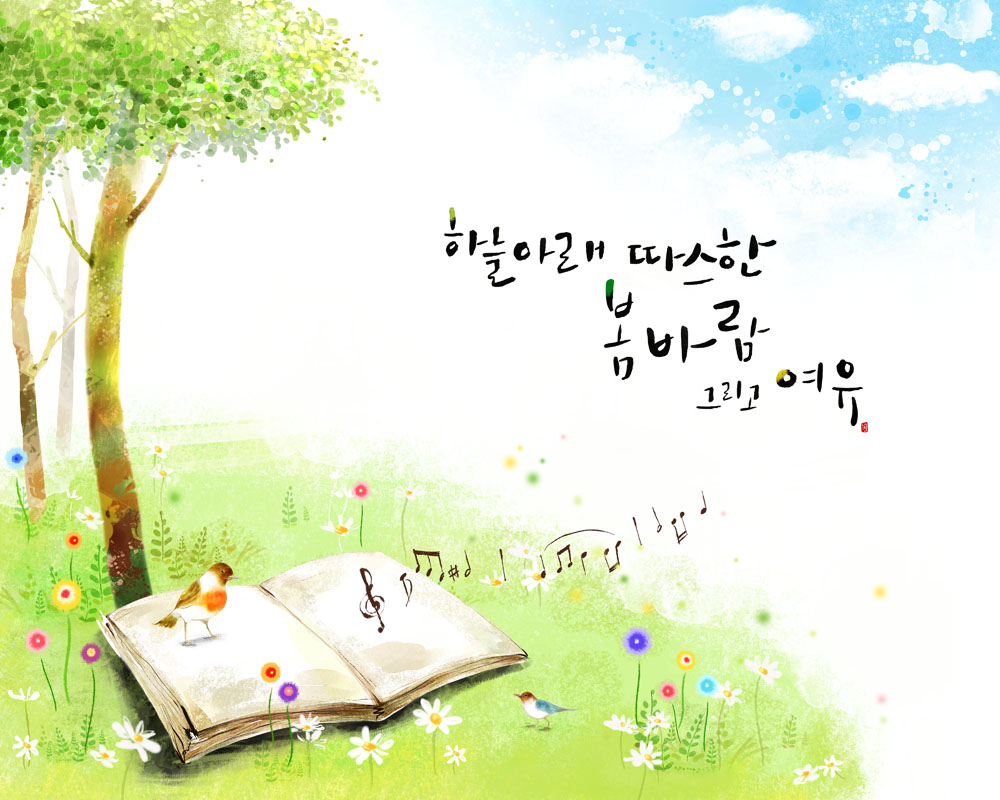 하늘아래 따스한
봄바람
그리고 여유